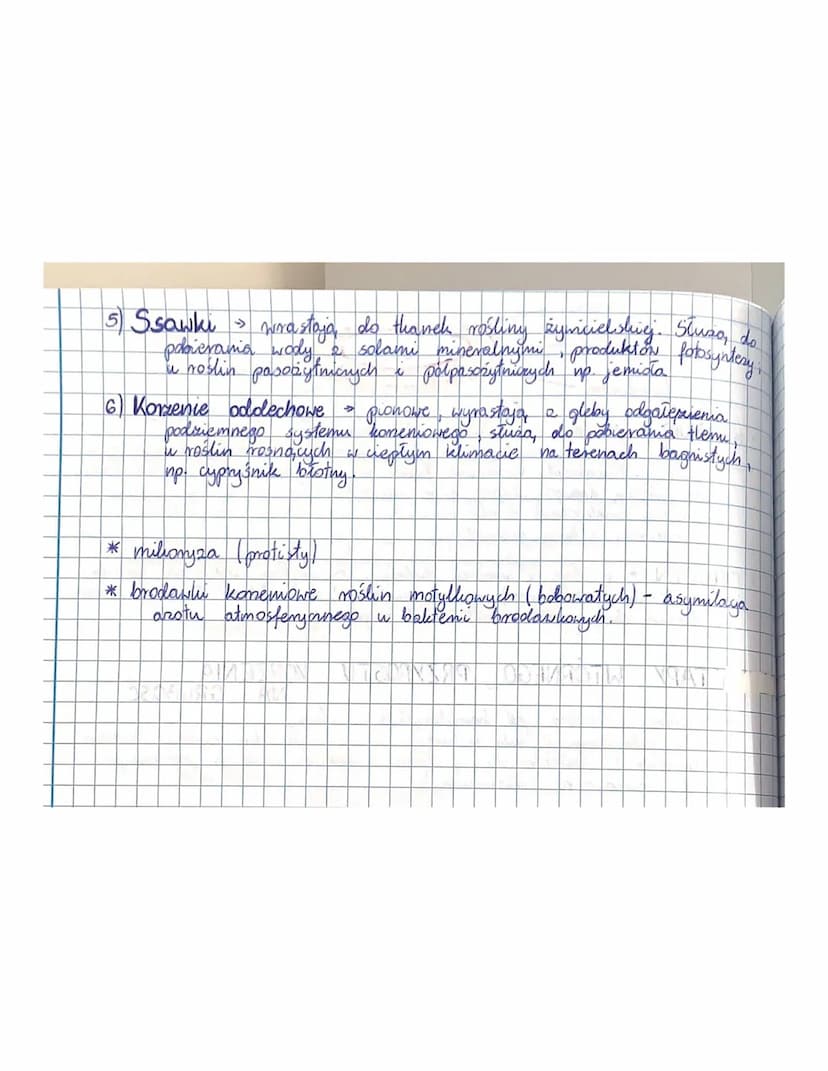 5) Ssawki → wrastają do tkanek rośliny żywicielskiej. Służą do
pobierania wody z solami mineralnymi, produktów fotosyntezy;
u roślin pasożytniczych i półpasożytniczych np. jemioła
6) Korzenie oddechowe → pionowe, wyrastają z gleby odgałęzienia
podziemnego systemu korzeniowego, służą do pobierania tlenu,
u roślin rosnących w ciepłym klimacie na terenach bagnistych,
np. cypryśnik błotny.
* mikoryza (protisty)
* brodawki korzeniowe roślin motylkowych (bobowatych) - asymilacja
azotu atmosferycznego u bakterii brodawkowych.